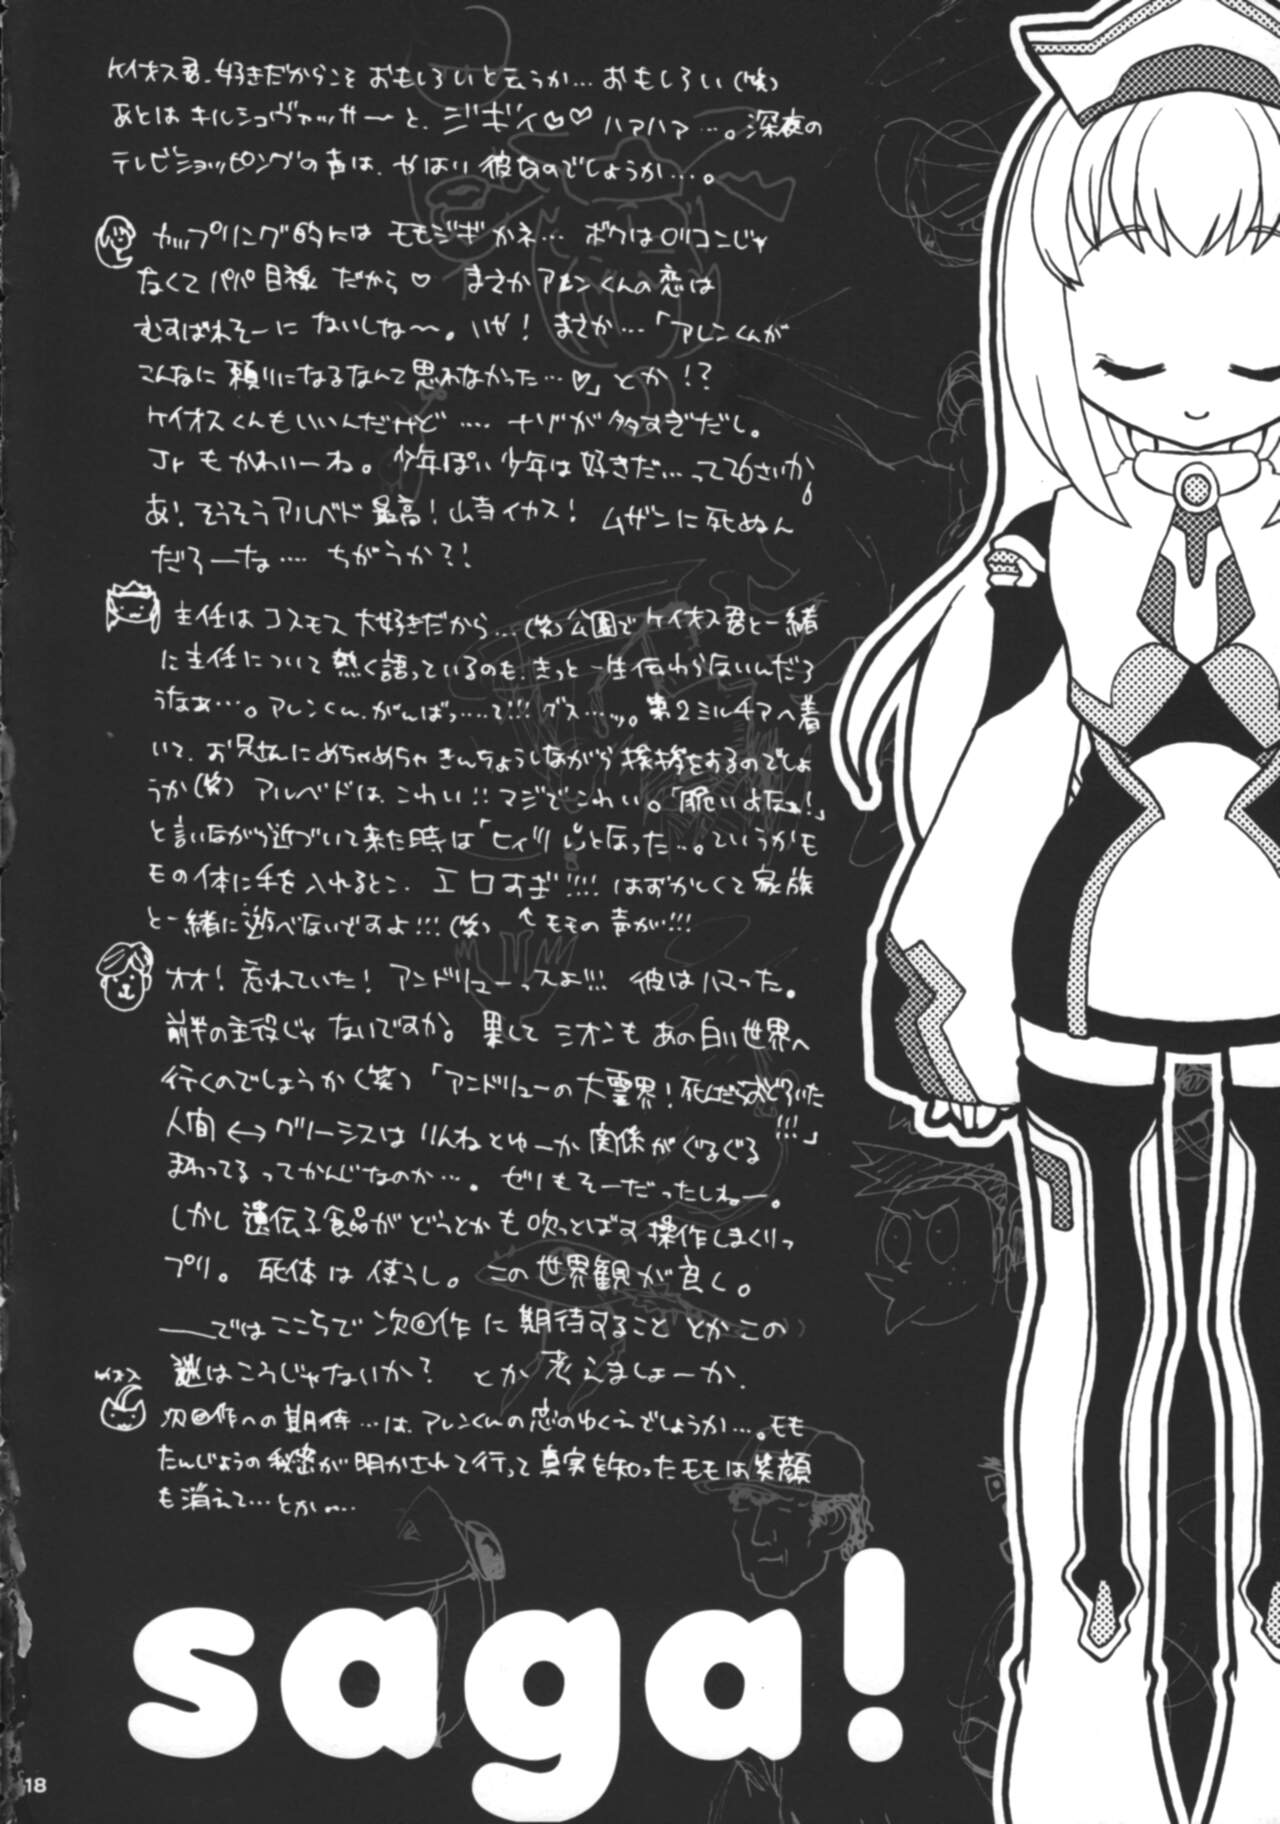 ケイオス君、好きだからこそ おもしろいと云うか… おもしろい(笑)
あとは キルシュヴァッサーと、ジギィ♡♡ ハァハァ…。深夜の
テレビショッピングの声は、やはり 彼なのでしょうか…。
カップリング的には モモジギかネ… ボクはロリコンじゃ
なくてパパ目線だから♡ まさかアレンくんの恋は
むすばれそーにないしな〜。いや! まさか…「アレンくんが
こんなに頼りになるなんて思わなかった…♡」とか!?
ケイオスくんもいいんだけど…. ナゾが多すぎだし。
Jrもかわいーね。少年ぽい少年は好きだ…って26さいか
あ! そうそうアルベド最高! 山寺イカス! ムザンに死ぬん
だろーな…. ちがうか?!
主任はコスモス大好きだから…(笑)公園でケイオス君と一緒
に主任について熱く語っているのも、きっと一生伝わらないんだろ
うなぁ…。アレンくん、がんばっ……て!!! グス…ッ。第2ミルチアへ着
いて、お兄さんにめちゃめちゃきんちょうしながら挨拶をするのでしょ
うか(笑) アルベドは、こわい!! マジでこわい。「脆いよなぁ!」
と言いながら近づいて来た時は「ヒィッ!」となった…。ていうかモ
モの体に手を入れるとこ、エロすぎ!!!! はずかしくて家族
と一緒に遊べないですよ!!!(笑) ↑モモの声が!!!
オオ! 忘れていた! アンドリューっスよ!!! 彼はハマった。
前半の主役じゃないですか。果して シオンも あの白い世界へ
行くのでしょうか(笑) 「アンドリューの大霊界! 死んだらおどろいた
!!!」
人間 ↔ グノーシスは りんねとゆーか関係がぐるぐる
まわってるってかんじなのか…。ゼノもそーだったしねー。
しかし遺伝子食品がどうとかも吹っとばす操作しまくりっ
プリ。死体は使うし。この世界観が良く。
――ではここらで次回作に期待することとかこの
謎はこうじゃないか? とか考えましょーか、
ケイオス
次回作への期待…は、アレンくんの恋のゆくえでしょうか…。モモ
たんじょうの秘密が明かされて行って真実を知ったモモは笑顔
も消えて…とか……
saga!
18